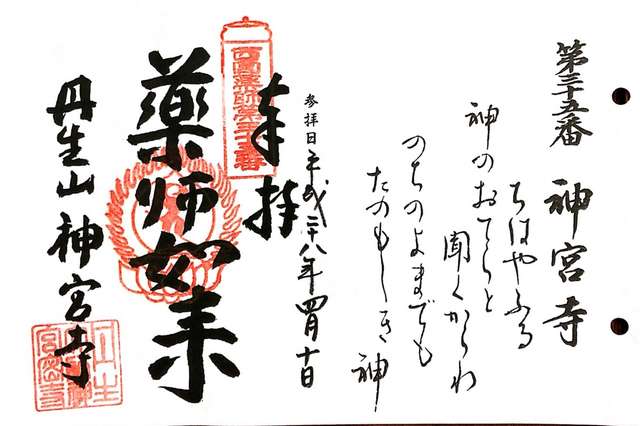 第三十五番 神宮寺
ちはやふる
神のおてらと
聞くからわ
のちのよまでも
たのもしき神
参拝日 平成二十八年四月十日
奉拝
西国薬師第三十五番
薬師如来
丹生山 神宮寺